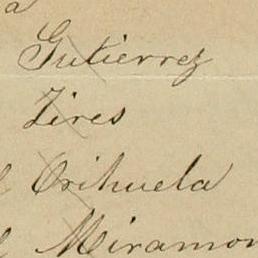 a
Gutierrez
Zires
l Orihuela
l Miramon